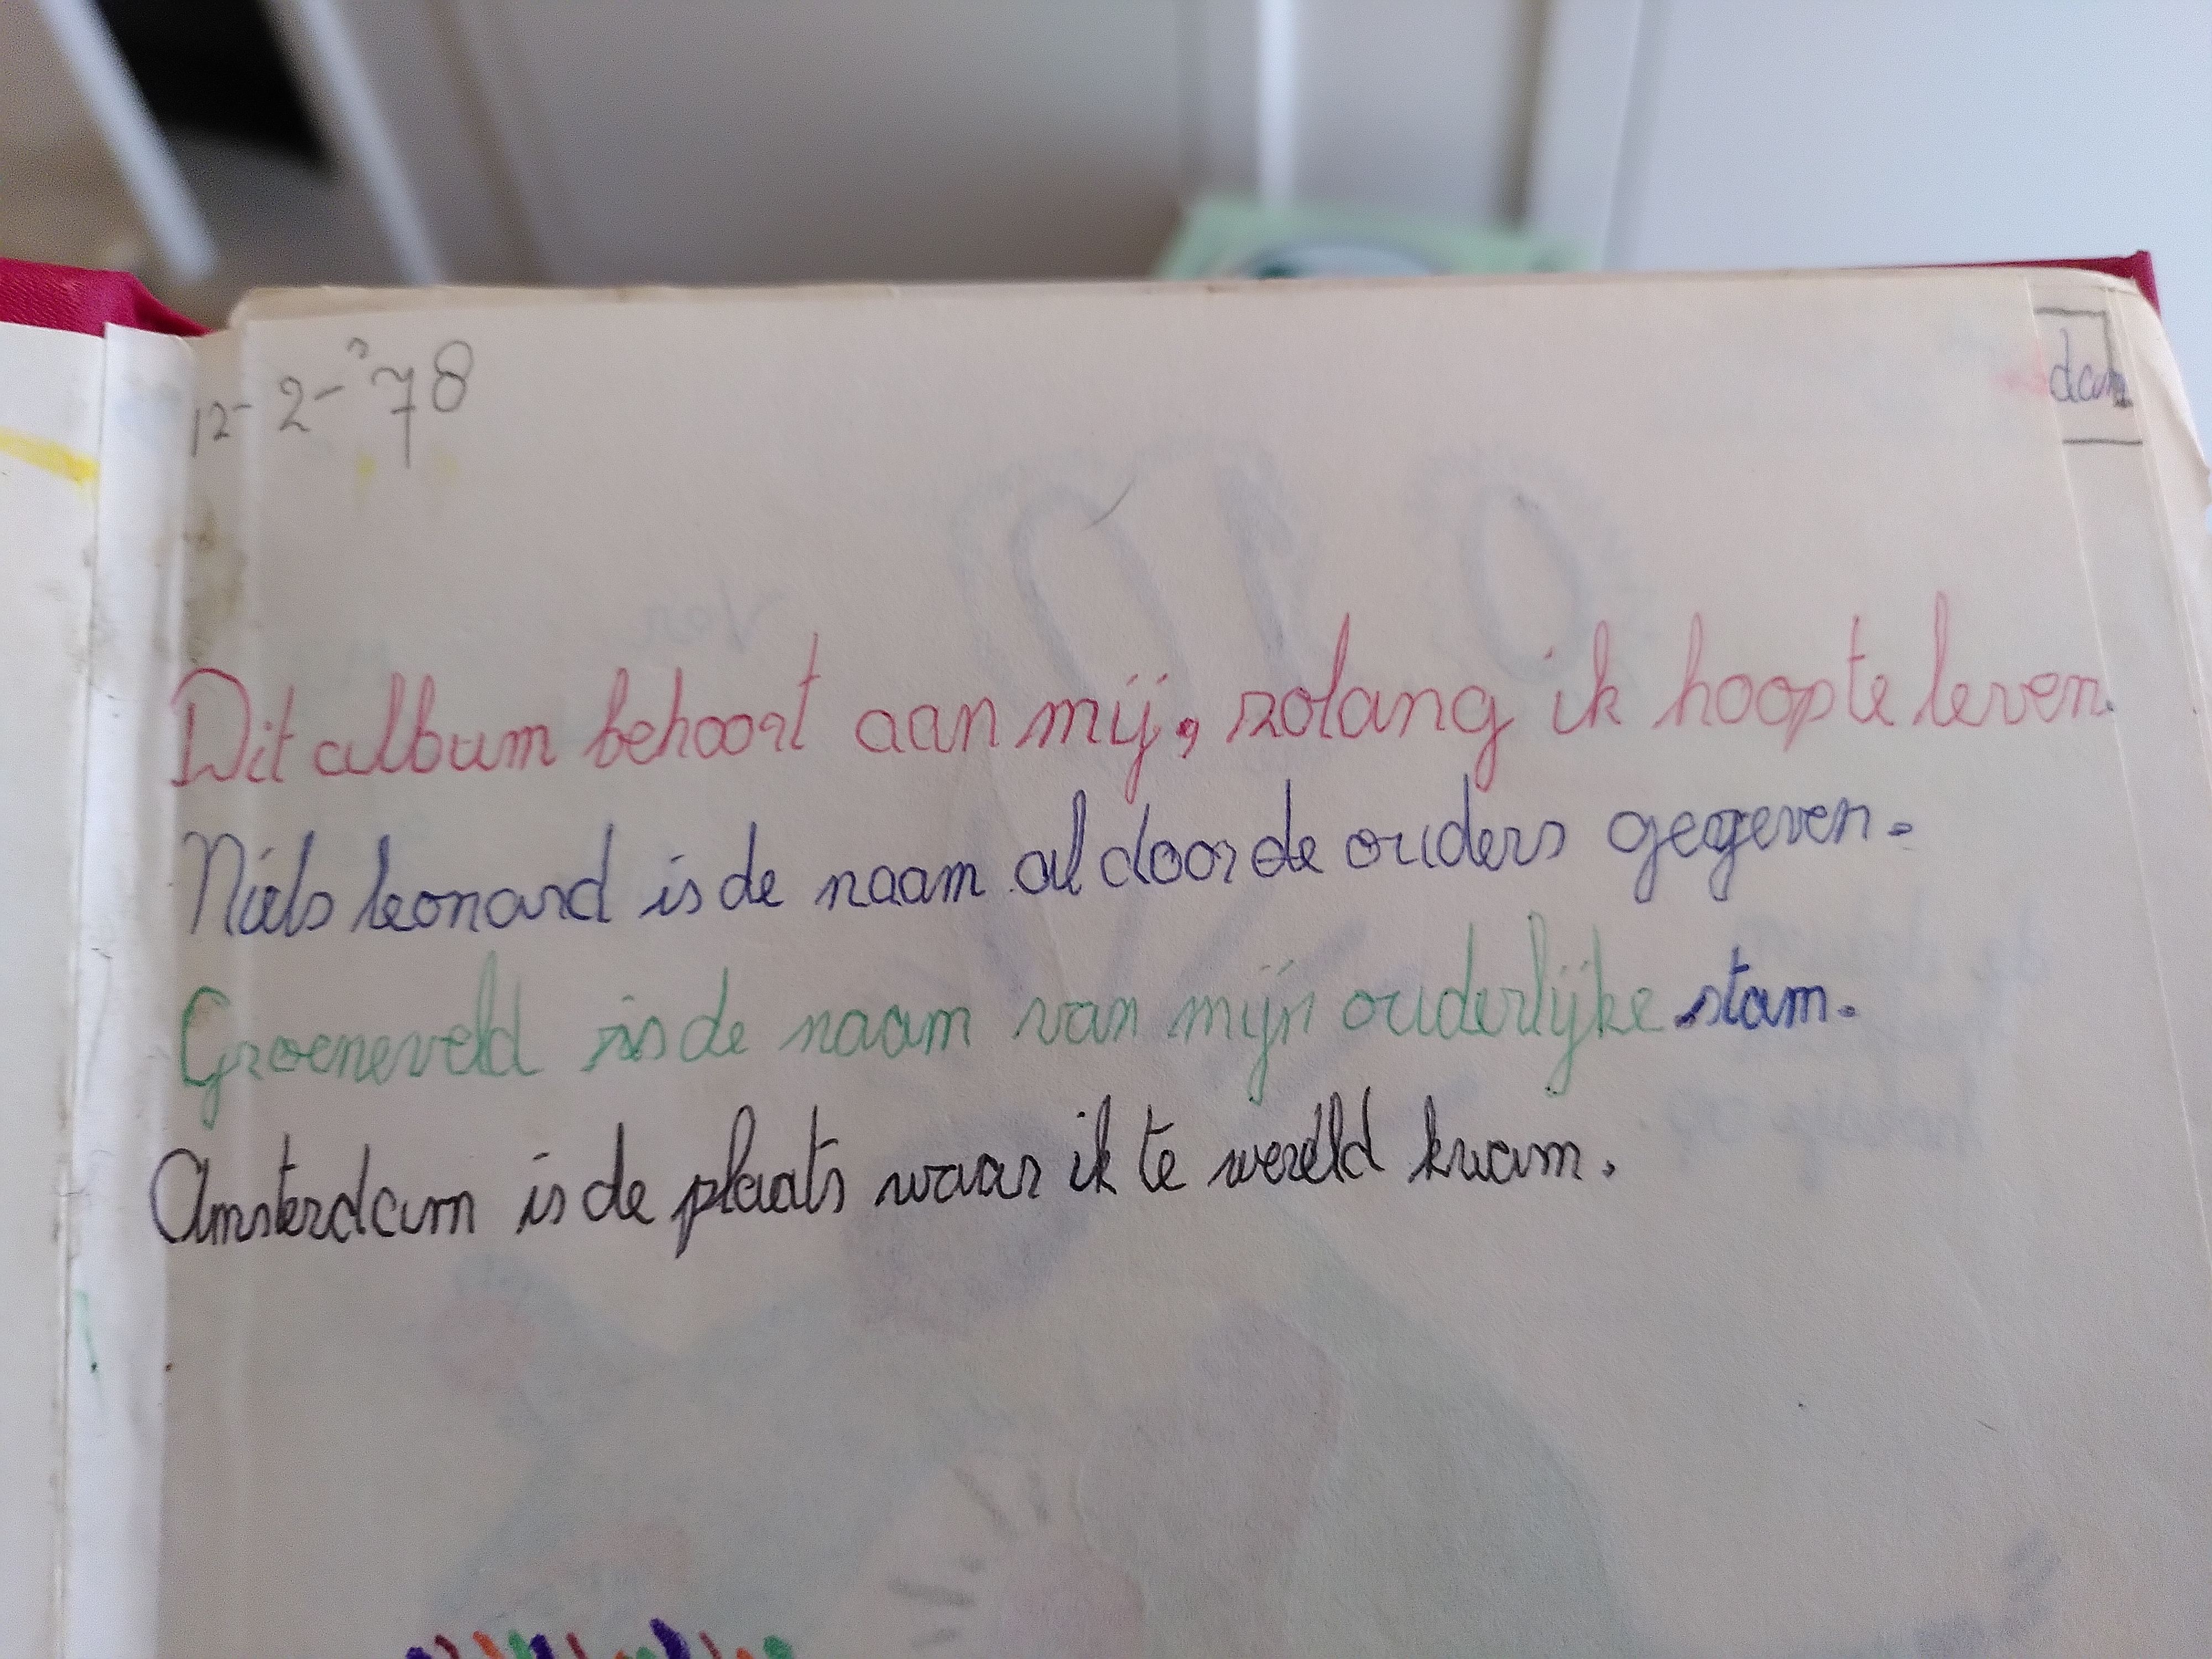 12-2-'78
dam
Dit album behoort aan mij, zolang ik hoop te leven.
Niels leonard is de naam al door de ouders gegeven.
Groeneveld is de naam van mijn ouderlijke stam.
Amsterdam is de plaats waar ik te wereld kwam.